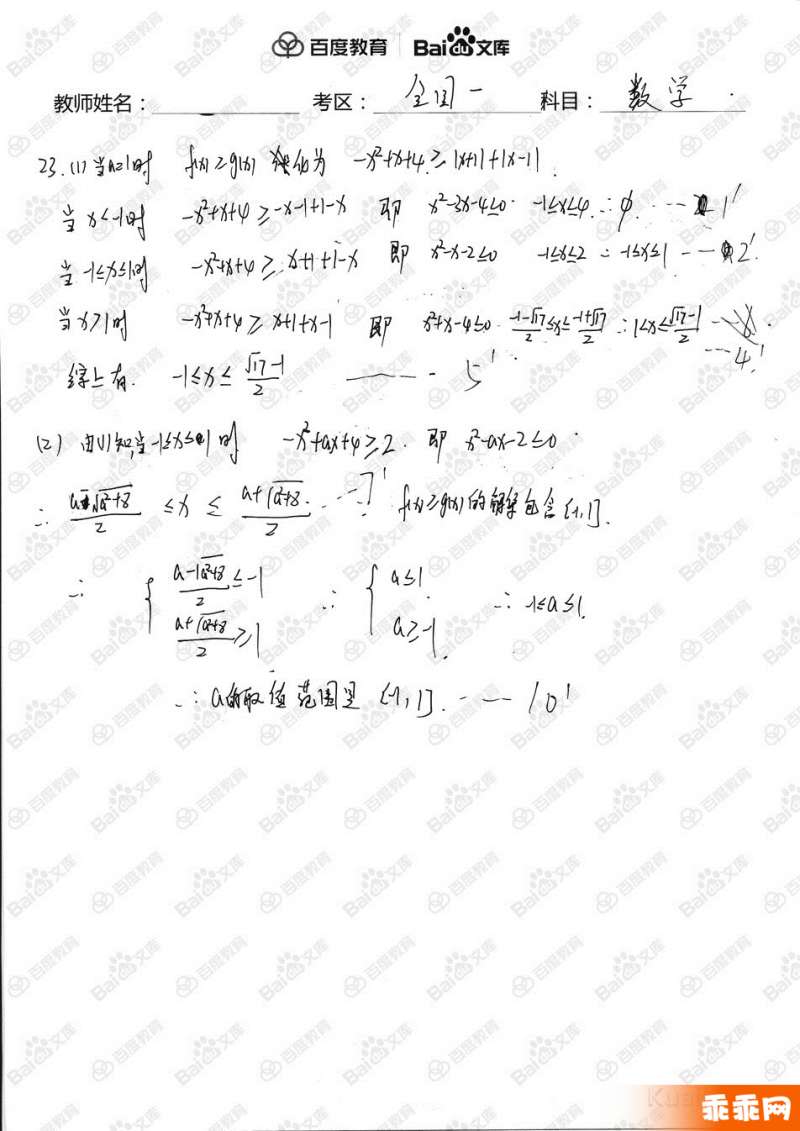 百度教育 Baidu文库
教师姓名： 考区：全国一 科目：数学
23.(1) 当a=1时 f(x)≥g(x) 化为 -x²+x+4≥|x+1|+|x-1|
当x<-1时 -x²+x+4≥-x-1+1-x 即 x²-3x-4≤0 -1≤x≤4 ∴φ ---1'
当-1≤x≤1时 -x²+x+4≥x+1+1-x 即 x²-x-2≤0 -1≤x≤2 ∴-1≤x≤1 ---2'
当x>1时 -x²+x+4≥x+1+x-1 即 x²+x-4≤0 (-1-√17)/2≤x≤(-1+√17)/2 ∴1<x≤(√17-1)/2
---4'
综上有 -1≤x≤(√17-1)/2 ——— 5'
(2) 由(1)知,当-1≤x≤1时 -x²+ax+4≥2 即 x²-ax-2≤0
∴ (a-√a²+8)/2 ≤x≤ (a+√a²+8)/2 ---7' f(x)≥g(x)的解集包含[-1,1].
∴ { (a-√a²+8)/2≤-1 ∴ { a≤1
(a+√a²+8)/2≥1 a≥-1. ∴-1≤a≤1.
∴a的取值范围是[-1,1]. ---10'
乖乖网